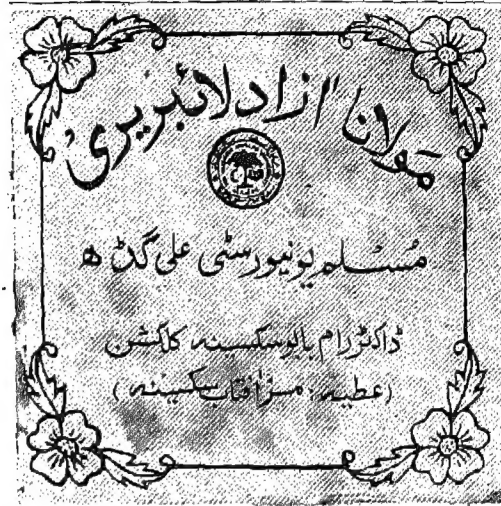 مولانا آزاد لائبریری
مُسلم یونیورسٹی علی گڑھ
ڈاکٹر رام بابو سکسینہ کلکشن
(عطیہ : مسز آفتاب سکسینہ)